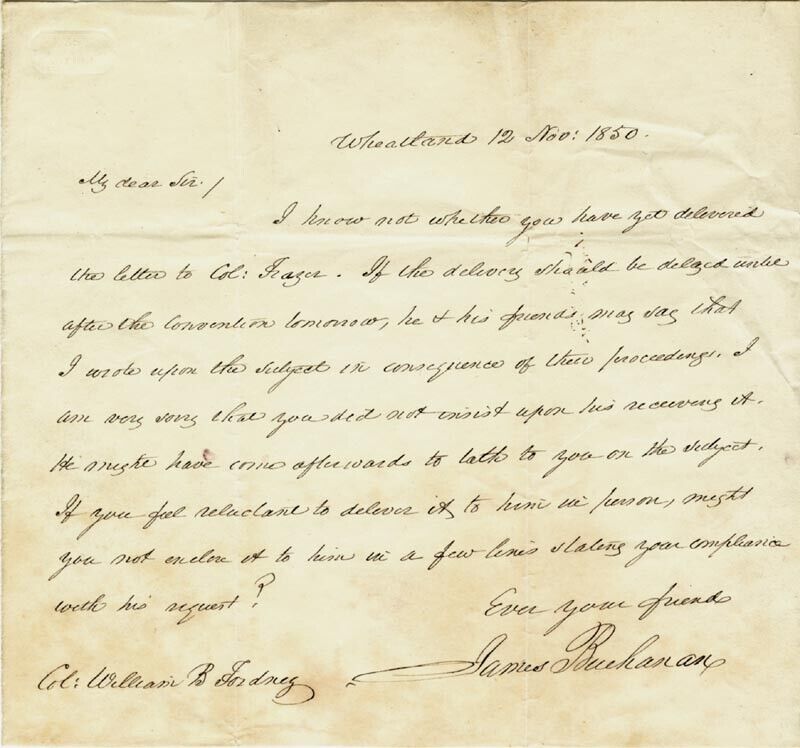 Wheatland 12 Nov: 1850.
My dear Sir /
I know not whether you have yet delivered
the letter to Col: Frazer. If the delivery should be delayed until
after the Convention tomorrow, he & his friends may say that
I wrote upon the subject in consequence of their proceedings. I
am very sorry that you did not insist upon his receiving it.
He might have come afterwards to talk to you on the subject.
If you feel reluctant to deliver it to him in person, might
you not enclose it to him in a few lines stating your compliance
with his request?
Ever your friend
James Buchanan
Col: William B Fordney